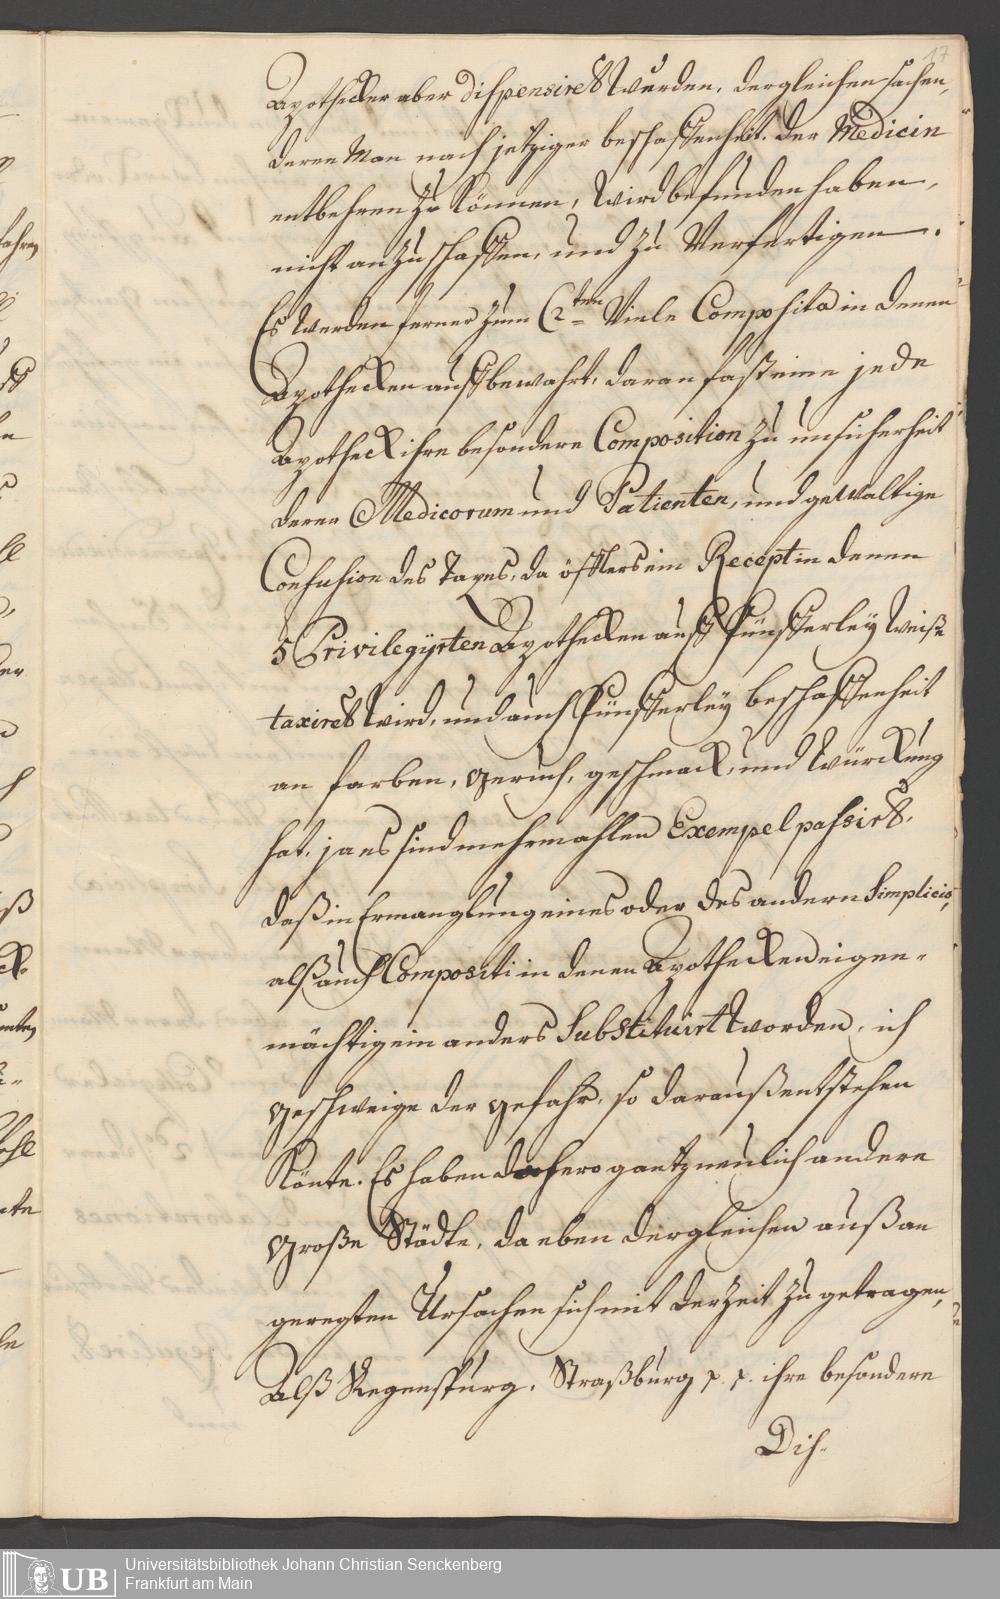 17
Apothecker aber dispensiret wurden, dergleichen sachen,
deren Man nach jetziger beschaffenheit der Medicin
entbehren zu können, wird befunden haben,
nicht anzuschaffen, und zu Verfertigen.
Es werden ferner zum (2ten Viele Composita in denen
Apothecken auffbewahrt, daran fast eine jede
Apotheck ihre besondere Composition zu unsicherheit
deren Medicorum und Patienten, und gewaltige
Confusion des Taxes, da öffters ein Recept in denen
5 Privilegyrten Apothecken auff Fünfferley Weiße
taxiret wird, und auch Fünfferley beschaffenheit
an farben, geruch, geschmack, und würckung
hat, ja es sind mehrmahlen Exempel passirt,
daß in Ermanglung eines oder des andern Simplicis,
alß auch Compositi in denen Apothecken eigen-
mächtig ein anders Substituirt worden, ich
geschweige der gefahr, so darauß entstehen
könte. Es haben dahero gantz neulich andere
große Städte, da eben dergleichen auß an
geregten Ursachen sich mit der Zeit zu getragen,
Alß Regenspurg, Straßburg p. p. ihre besondere
Dis-
Universitätsbibliothek Johann Christian Senckenberg
Frankfurt am Main
UB